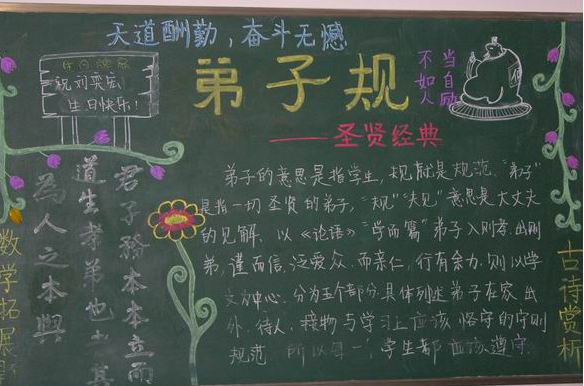 天道酬勤，奋斗无憾
祝刘奕宏
生日快乐！
弟子规
不如人
当自励
——圣贤经典
弟子的意思是指学生，规就是规范。"弟子"
是指一切圣贤的弟子，"规""夫见"意思是大丈夫
的见解。以《论语》"学而篇"弟子入则孝出则
弟，谨而信，泛爱众，而亲仁，行有余力，则以学
文为中心。分为五个部分，具体列述弟子在家、出
外、待人、接物与学习上应该恪守的守则
规范 所以每一 学生都应该遵守
君子務本本立而
道生孝弟也 其
為人之本與
数学拓展
古诗赏析